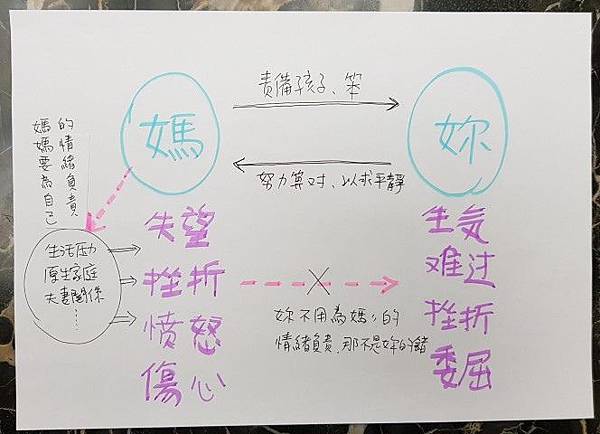 責備孩子、笨
媽
妳
努力算对、以求平靜
媽媽要為自己
的情緒負責
生活压力
原生家庭
夫妻關係
……
失望
挫折
愤怒
傷心
生気
难过
挫折
委屈
妳不用為媽〻的
情緒負責,那不是妳的錯